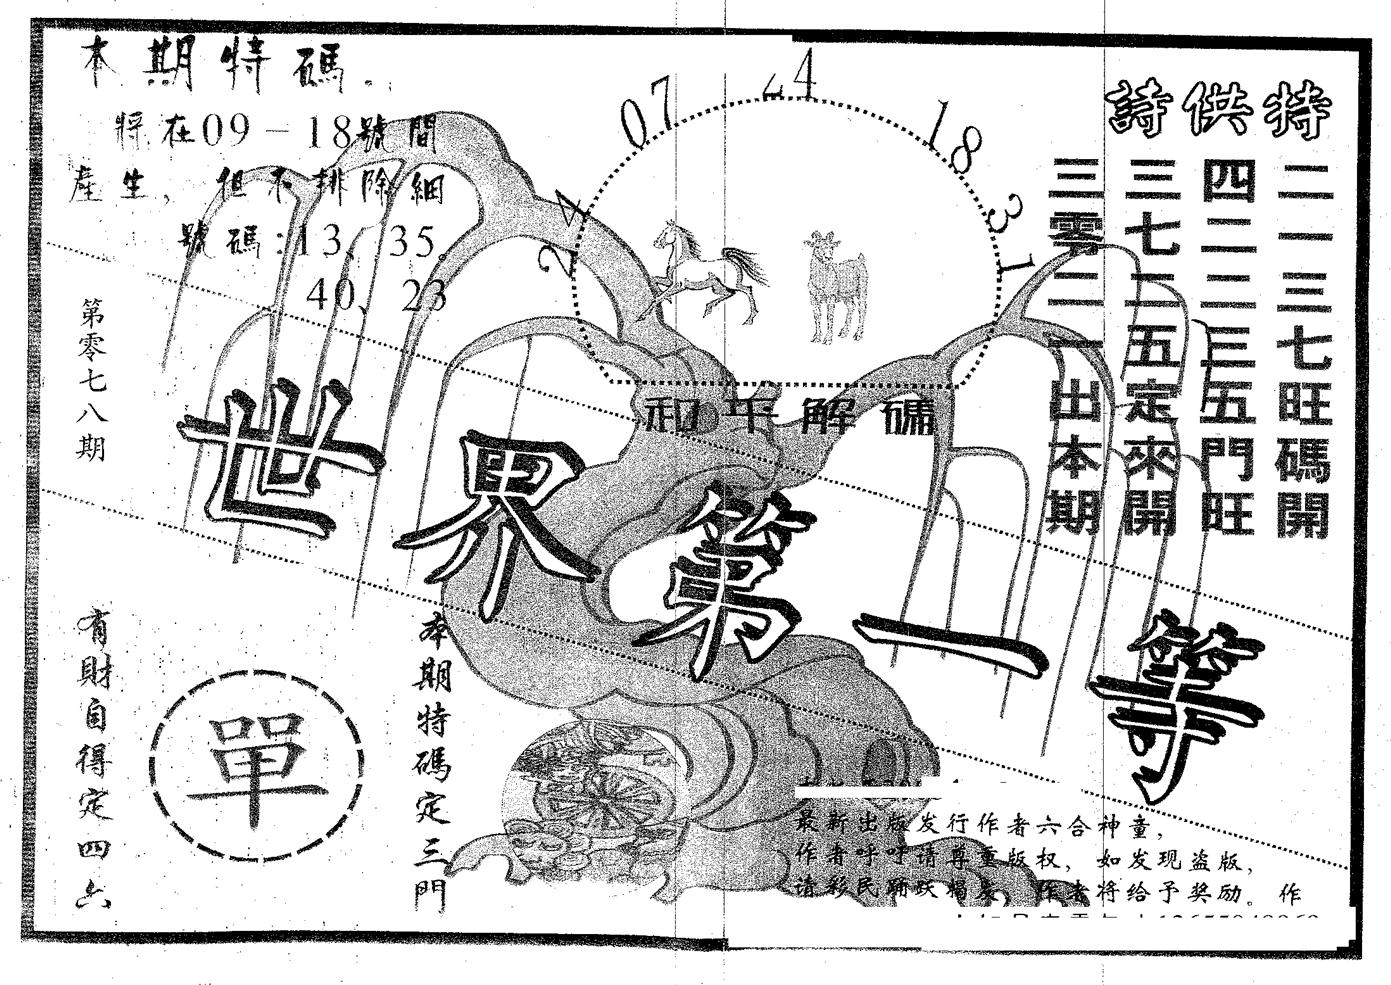 本期特碼
將在09－18號間
產生，但不排除細
號碼：13、35。
40、23
第零七八期
24
07
24
18
31
和平解碼
特供詩
二一三七旺碼開
四二二三五門旺
三七二五定來開
三零二一出本期
世界第一等
有財自得定四六
單
本期特碼定三門
最新出版发行作者六合神童，
作者呼吁请尊重版权，如发现盗版，
请彩民踊跃揭发，作者将给予奖励。作